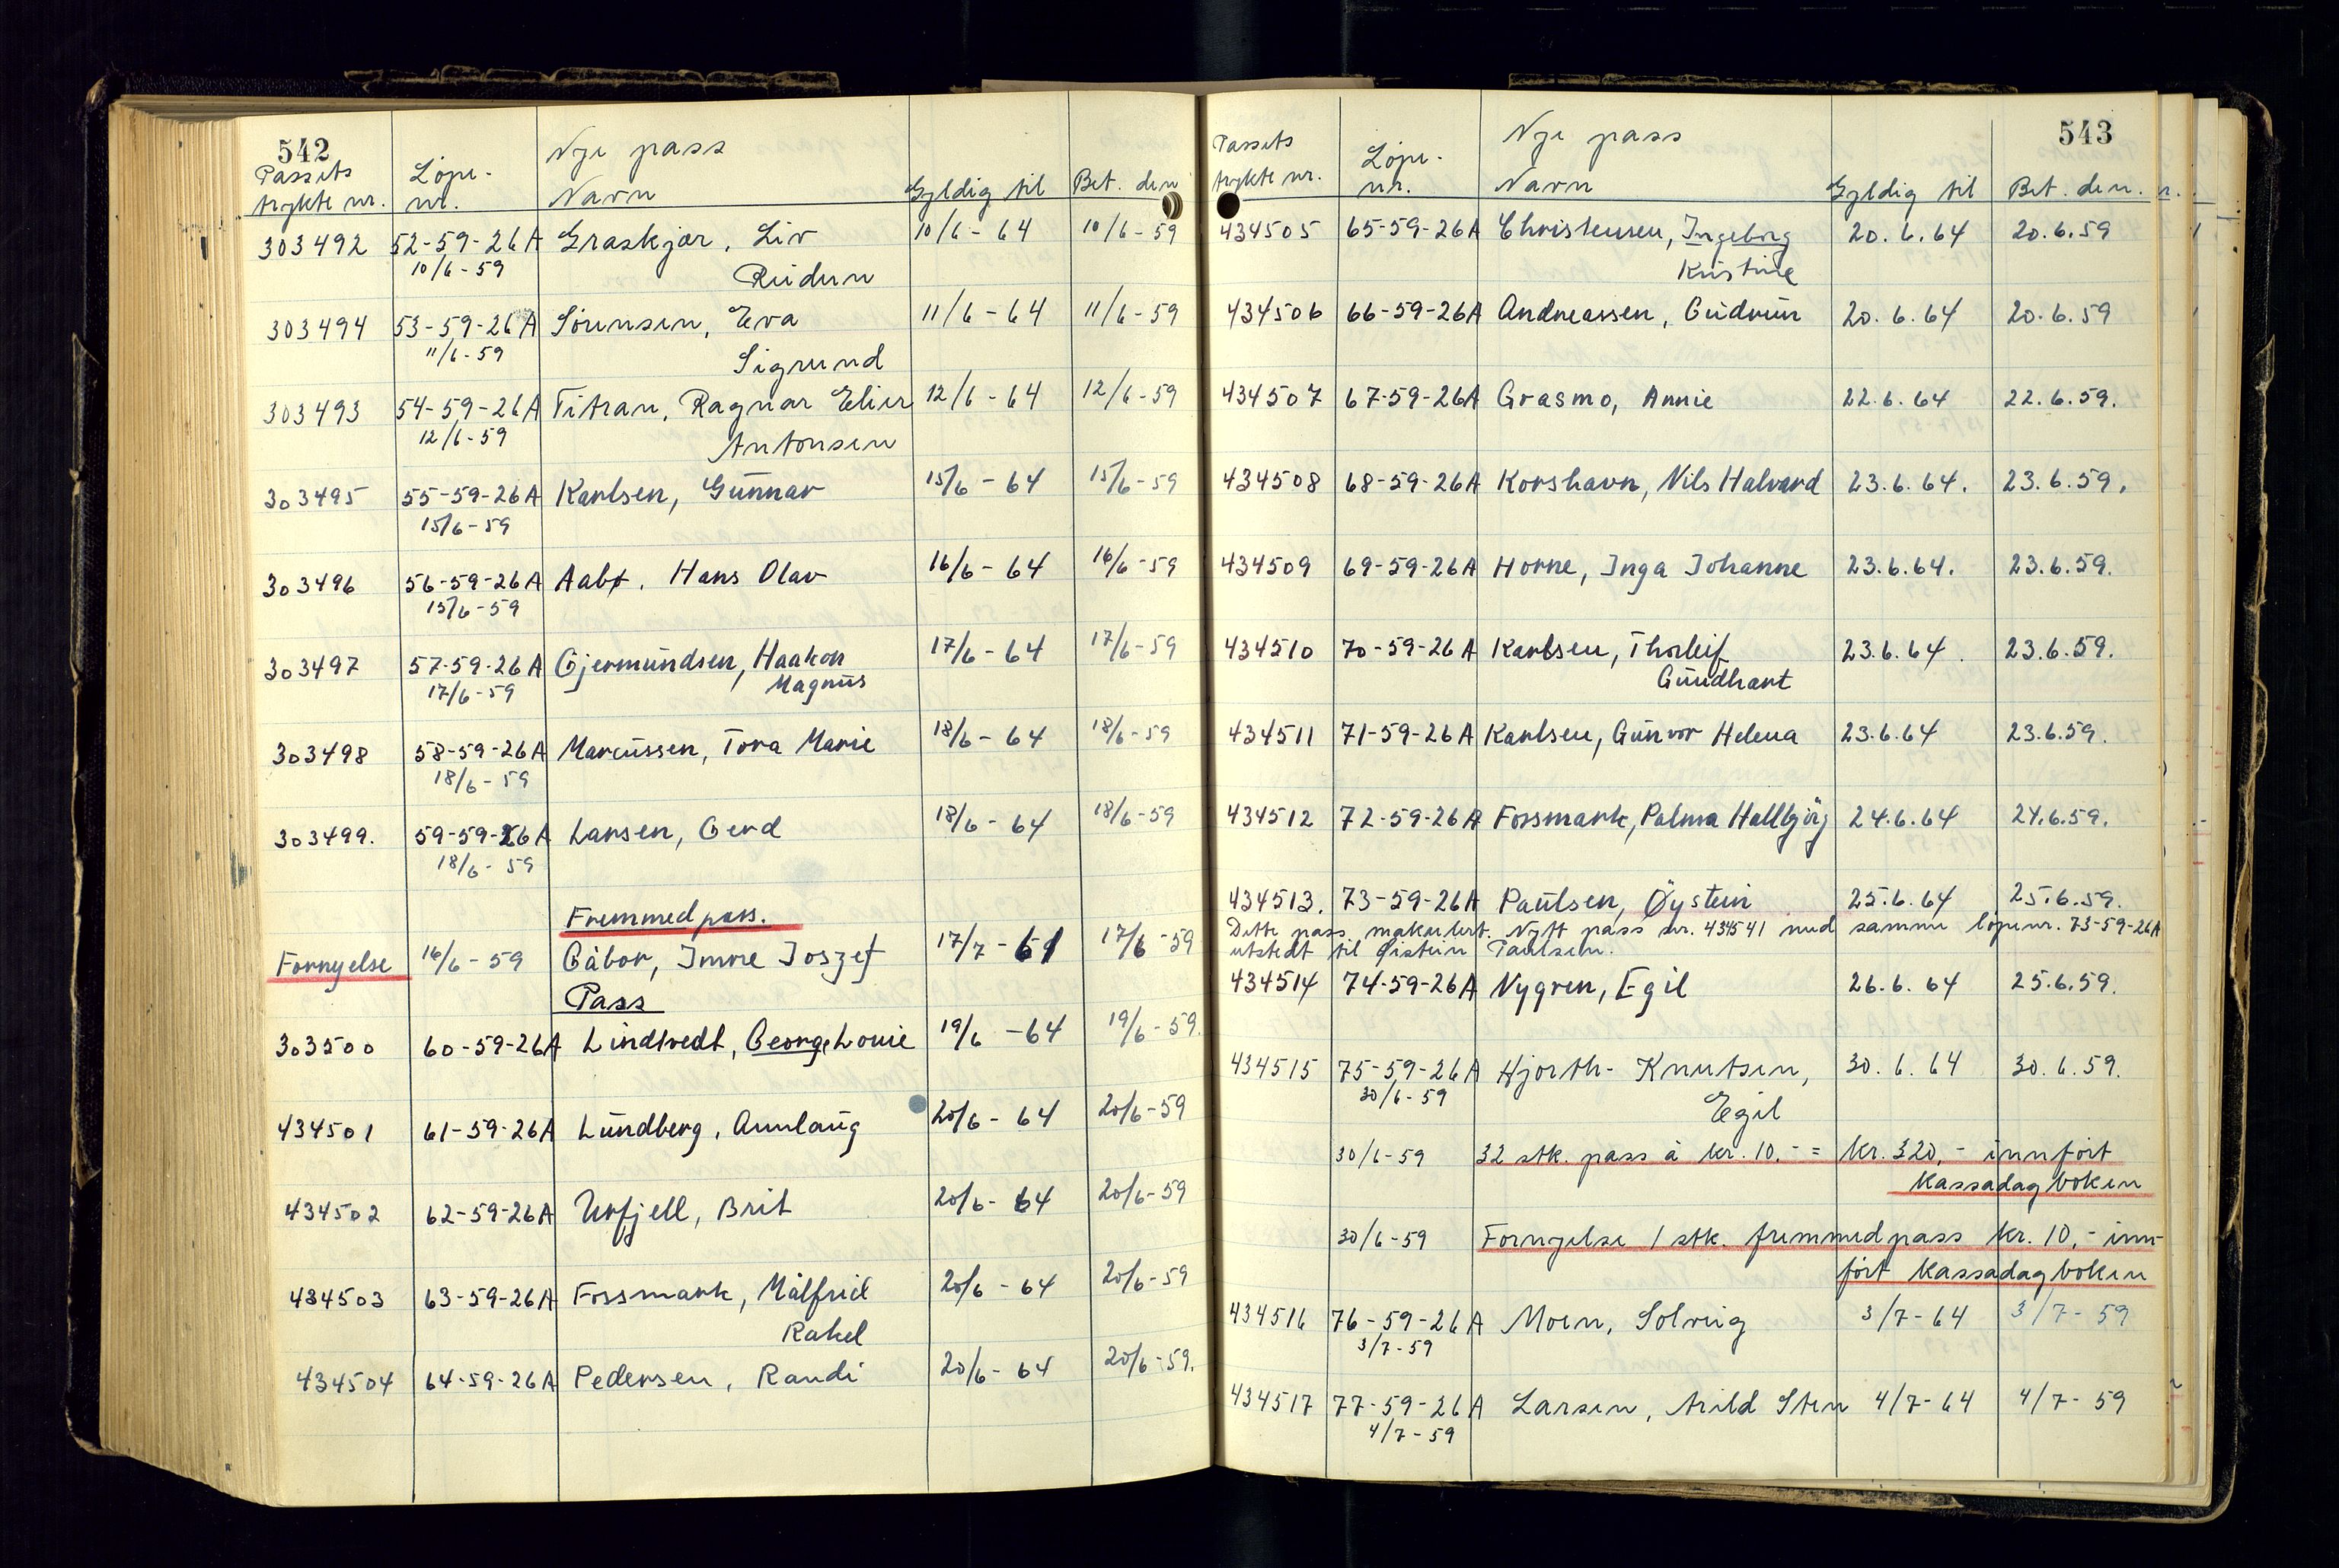 542
Nye pass
Passets
trykte nr. Löpe-
nr. Navn Gyldig til Bet. den
303492 52-59-26A Graskjær, Liv 10/6-64 10/6-59
10/6-59 Reidun
303494 53-59-26A Sørensen, Eva 11/6-64 11/6-59
11/6-59 Sigrund
303493 54-59-26A Titran, Ragnar Elier 12/6-64 12/6-59
12/6-59 Antonsen
303495 55-59-26A Karlsen, Gunnar 15/6-64 15/6-59
15/6-59
303496 56-59-26A Aabø, Hans Olav 16/6-64 16/6-59
15/6-59
303497 57-59-26A Gjermundsen, Haakon 17/6-64 17/6-59
17/6-59 Magnus
303498 58-59-26A Marcussen, Tora Marie 18/6-64 18/6-59
18/6-59
303499. 59-59-26A Larsen, Gerd 18/6-64 18/6-59
18/6-59
Fremmedpass.
Fornyelse 16/6-59 Gàbor, Imre Joszef 17/7-61 17/6-59
Pass
303500 60-59-26A Lindtvedt, George Louie 19/6-64 19/6-59.
434501 61-59-26A Lundberg, Aunlaug 20/6-64 20/6-59
434502 62-59-26A Urfjell, Brit 20/6-64 20/6-59
434503 63-59-26A Fossmark, Målfrid 20/6-64 20/6-59
Rakel
434504 64-59-26A Pedersen, Randi 20/6-64 20/6-59.
543
Nye pass
Passets
trykte nr. Löpe-
nr. Navn Gyldig til Bet. den.
434505 65-59-26A Christensen, Ingeborg 20.6.64 20.6.59
Kristine
434506 66-59-26A Andreassen, Gudrun 20.6.64 20.6.59
434507 67-59-26A Grasmo, Annie 22.6.64 22.6.59.
434508 68-59-26A Korshavn, Nils Halvard 23.6.64. 23.6.59.
434509 69-59-26A Horne, Inga Johanne 23.6.64. 23.6.59.
434510 70-59-26A Karlsen, Thorleif 23.6.64. 23.6.59.
Gundhart
434511 71-59-26A Karlsen, Gunvor Helena 23.6.64 23.6.59.
434512 72-59-26A Fossmark, Palma Hallbjörg 24.6.64 24.6.59.
434513. 73-59-26A Paulsen, Øystein 25.6.64 25.6.59.
Dette pass makulert. Nytt pass nr. 434541 med samme löpenr. 73-59-26A
utstedt til Øistein Paulsen.
434514 74-59-26A Nygren, Egil 26.6.64 25.6.59.
434515 75-59-26A Hjorth-Knutsen, 30.6.64 30.6.59.
30/6-59 Egil
30/6-59 32 stk. pass à kr. 10,- = kr. 320,- innført
kassadagboken
30/6-59 Fornyelse 1 stk. fremmedpass kr. 10,- inn-
ført kassadagboken
434516 76-59-26A Moen, Solveig 3/7-64 3/7-59
3/7-59
434517 77-59-26A Larsen, Arild Sten 4/7-64 4/7-59
4/7-59